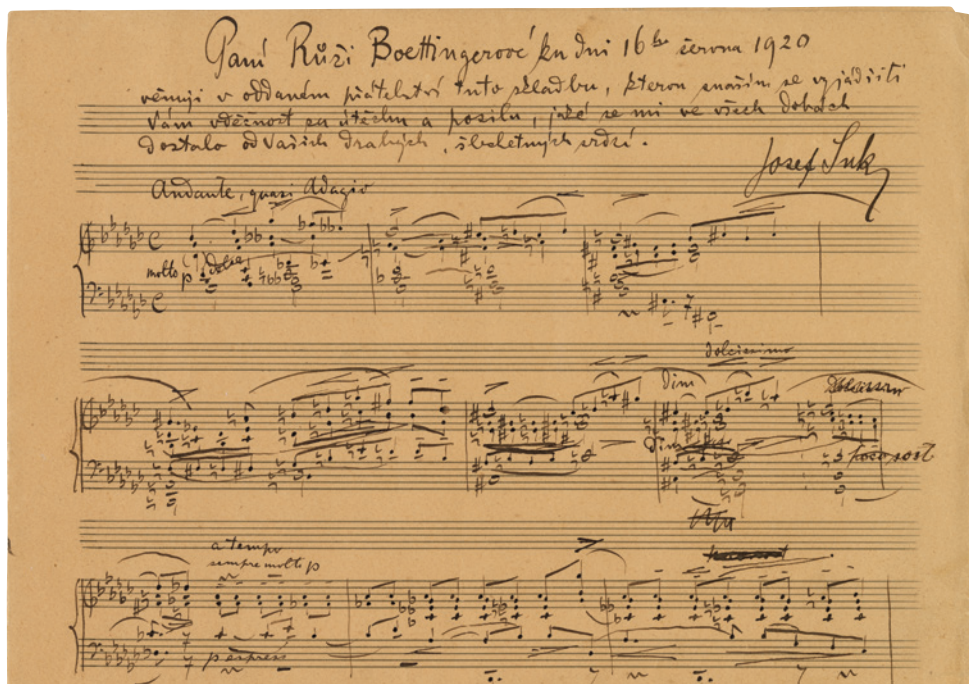 Paní Růži Boettingerové ku dni 16ho června 1920
věnuji v oddaném přátelství tuto skladbu, kterou snažím se vyjádřiti
Vám vděčnost za útěchu a posilu, jaké se mi ve všech dobách
dostalo od Vašich drahých, šlechetných srdcí.
Josef Suk
Andante, quasi Adagio
molto p dolce
dolcissimo
dim
dim
poco sost
a tempo
sempre molto p
p espress